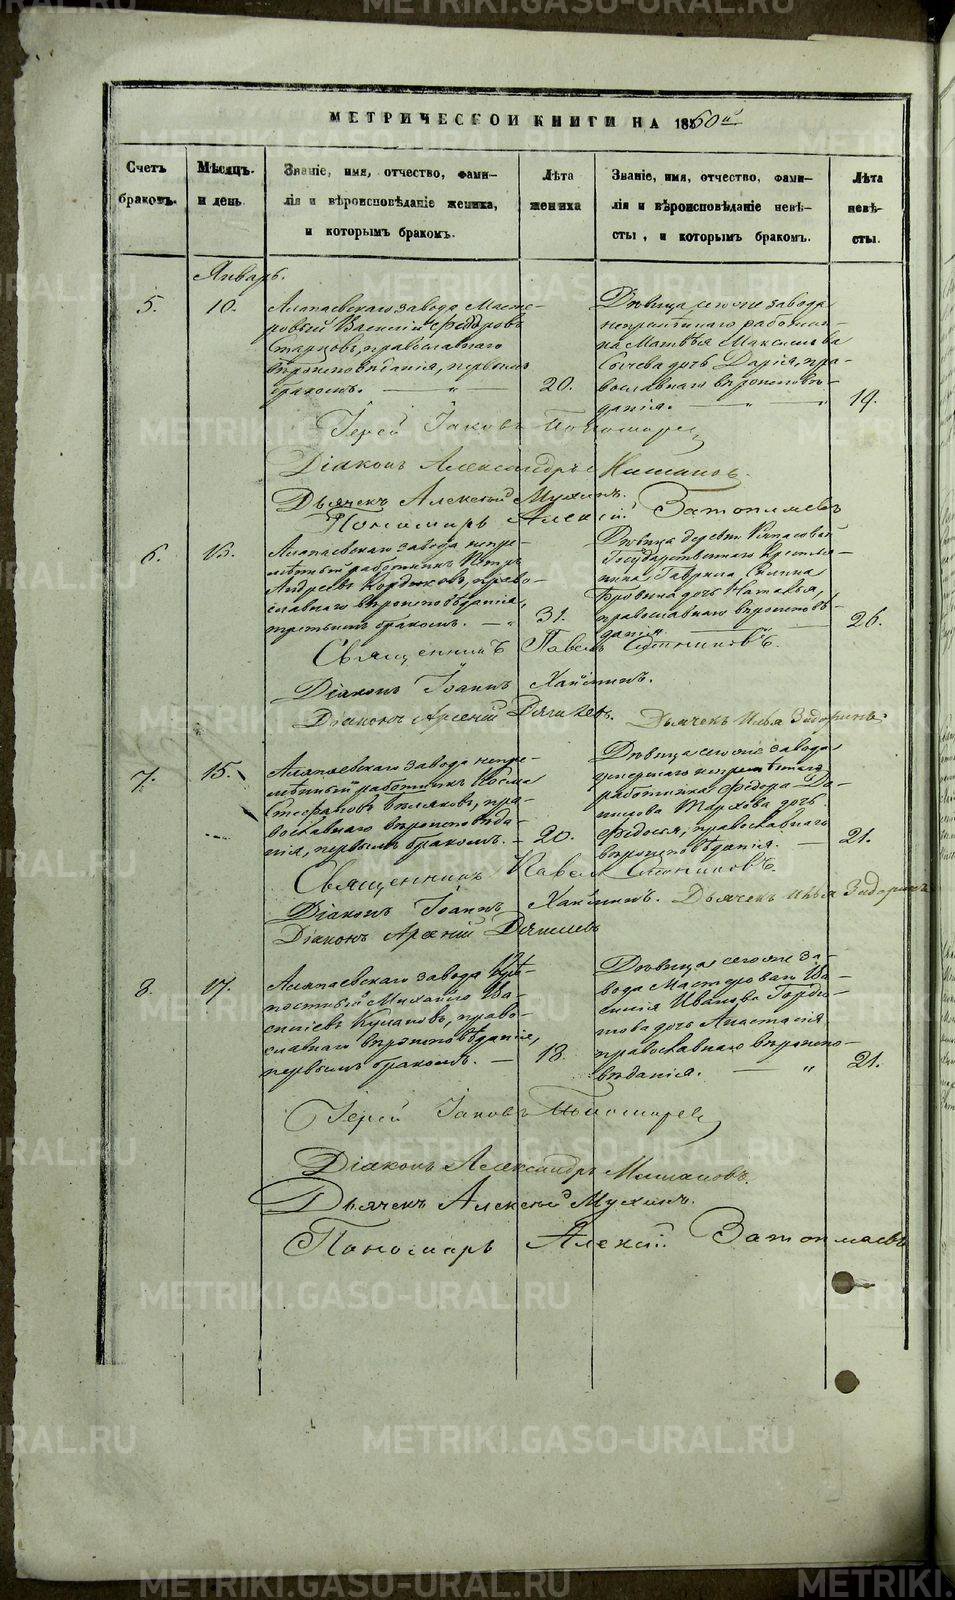 МЕТРИЧЕСКОЙ КНИГИ НА 1860й
Счетъ браковъ.
Мѣсяцъ и день.
Званіе, имя, отчество, фами-
лія и вѣроисповѣданіе жениха,
и которымъ бракомъ.
Лѣта
жениха
Званіе, имя, отчество, фами-
лія и вѣроисповѣданіе невѣ-
сты, и которымъ бракомъ.
Лѣта
невѣ-
сты.
Январь.
5.
10.
Алапаевскаго завода Масте-
ровый Василій Ѳедоровъ
Старцовъ, православнаго
вѣроисповѣданія, первымъ
бракомъ.
20.
Дѣвица сегоже завода
непремѣннаго работни-
ка Матвѣя Максимова
Сычева дочь Дарія, пра-
вославнаго вѣроисповѣ-
данія.
19.
Іерей Іаковъ Пономарев
Діаконъ Александръ
Дьячекъ Алексѣй Мухинъ.
Пономарь Алексій Затопляевъ
6.
Алапаевскаго завода непре-
мѣнный работникъ Петръ
Андреевъ, право-
славнаго вѣроисповѣданія,
третьимъ бракомъ.
31.
Дѣвица деревни
Государственнаго Крестья-
нина Гаврила
дочь Наталья,
православнаго вѣроисповѣ-
данія
26.
Священникъ Павелъ Сотниковъ.
Діаконъ Іоаннъ
Діаконъ Арсеній Дягилевъ.
Дьячекъ Илья Задоринъ.
7.
15.
Алапаевскаго завода непре-
мѣнный работникъ Косма
Стефановъ Бѣляковъ, пра-
вославнаго вѣроисповѣда-
нія, первымъ бракомъ.
20.
Дѣвица сегоже завода
умершаго непремѣннаго
работника Ѳедора Да-
нилова Тархова дочь
Ѳедосья, православнаго
вѣроисповѣданія.
21.
Священникъ Павелъ Сотниковъ.
Діаконъ Іоаннъ
Дьячекъ Илья Задоринъ
Діаконъ Арсеній Дягилевъ
8.
17.
Алапаевскаго завода Крѣ-
постный Михайло Ва-
силіевъ, право-
славнаго вѣроисповѣданія,
первымъ бракомъ.
18.
Дѣвица сегоже за-
вода Мастероваго Ва-
силія Иванова Горди-
това дочь Анастасія
православнаго вѣроиспо-
вѣданія.
21.
Іерей Іаковъ Пономарев
Діаконъ Александръ
Дьячекъ Алексѣй Мухинъ.
Пономарь Алексій Затопляевъ
METRIKI.GASO-URAL.RU